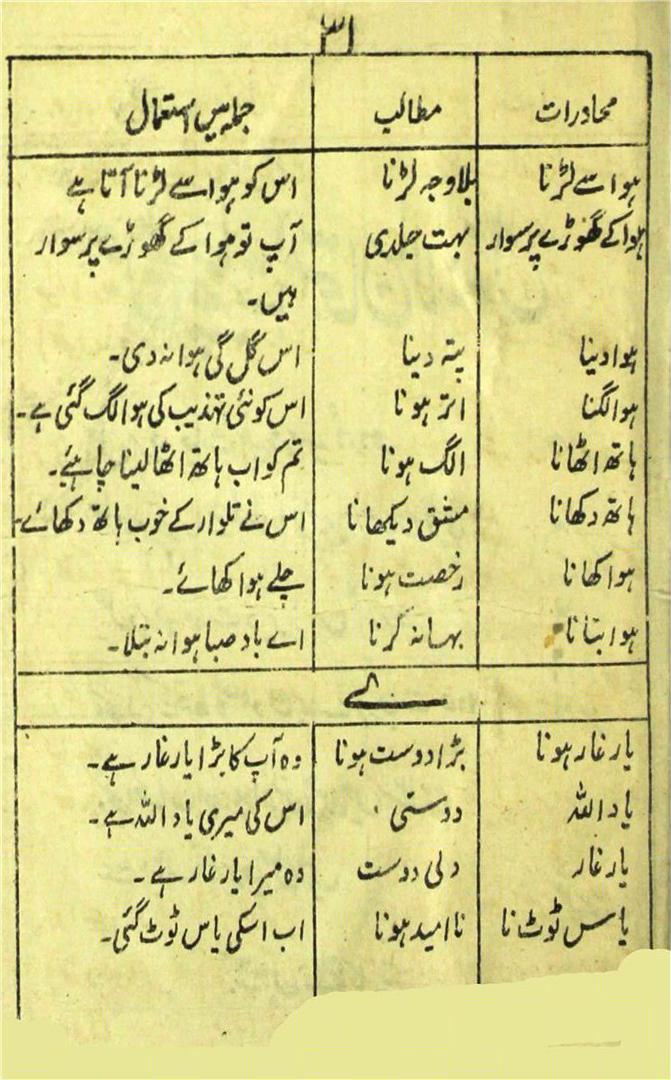 ۳۱
محاورات مطالب جملہ میں استعمال
ہوا سے لڑنا بلا وجہ لڑنا اس کو ہوا سے لڑنا آتا ہے
ہوا کے گھوڑے پر سوار بہت جلدی آپ تو ہوا کے گھوڑے پر سوار
ہیں۔
ہوا دینا پتہ دینا اس گل کی ہوا نہ دی۔
ہوا لگنا اثر ہونا اس کو نئی تہذیب کی ہوا لگ گئی ہے۔
ہاتھ اٹھانا الگ ہونا تم کو اب ہاتھ اٹھا لینا چاہئے۔
ہاتھ دکھانا مشق دیکھانا اس نے تلوار کے خوب ہاتھ دکھائے۔
ہوا کھانا رخصت ہونا چلے ہوا کھائے۔
ہوا بتانا بہانہ کرنا اے باد صبا ہوا نہ بتلا۔
ے
یار غار ہونا بڑا دوست ہونا وہ آپ کا بڑا یار غار ہے۔
یاد اللہ دوستی اس کی میری یاد اللہ ہے۔
یار غار دلی دوست وہ میرا یار غار ہے۔
یاس ٹوٹ نا نا امید ہونا اب اسکی یاس ٹوٹ گئی۔